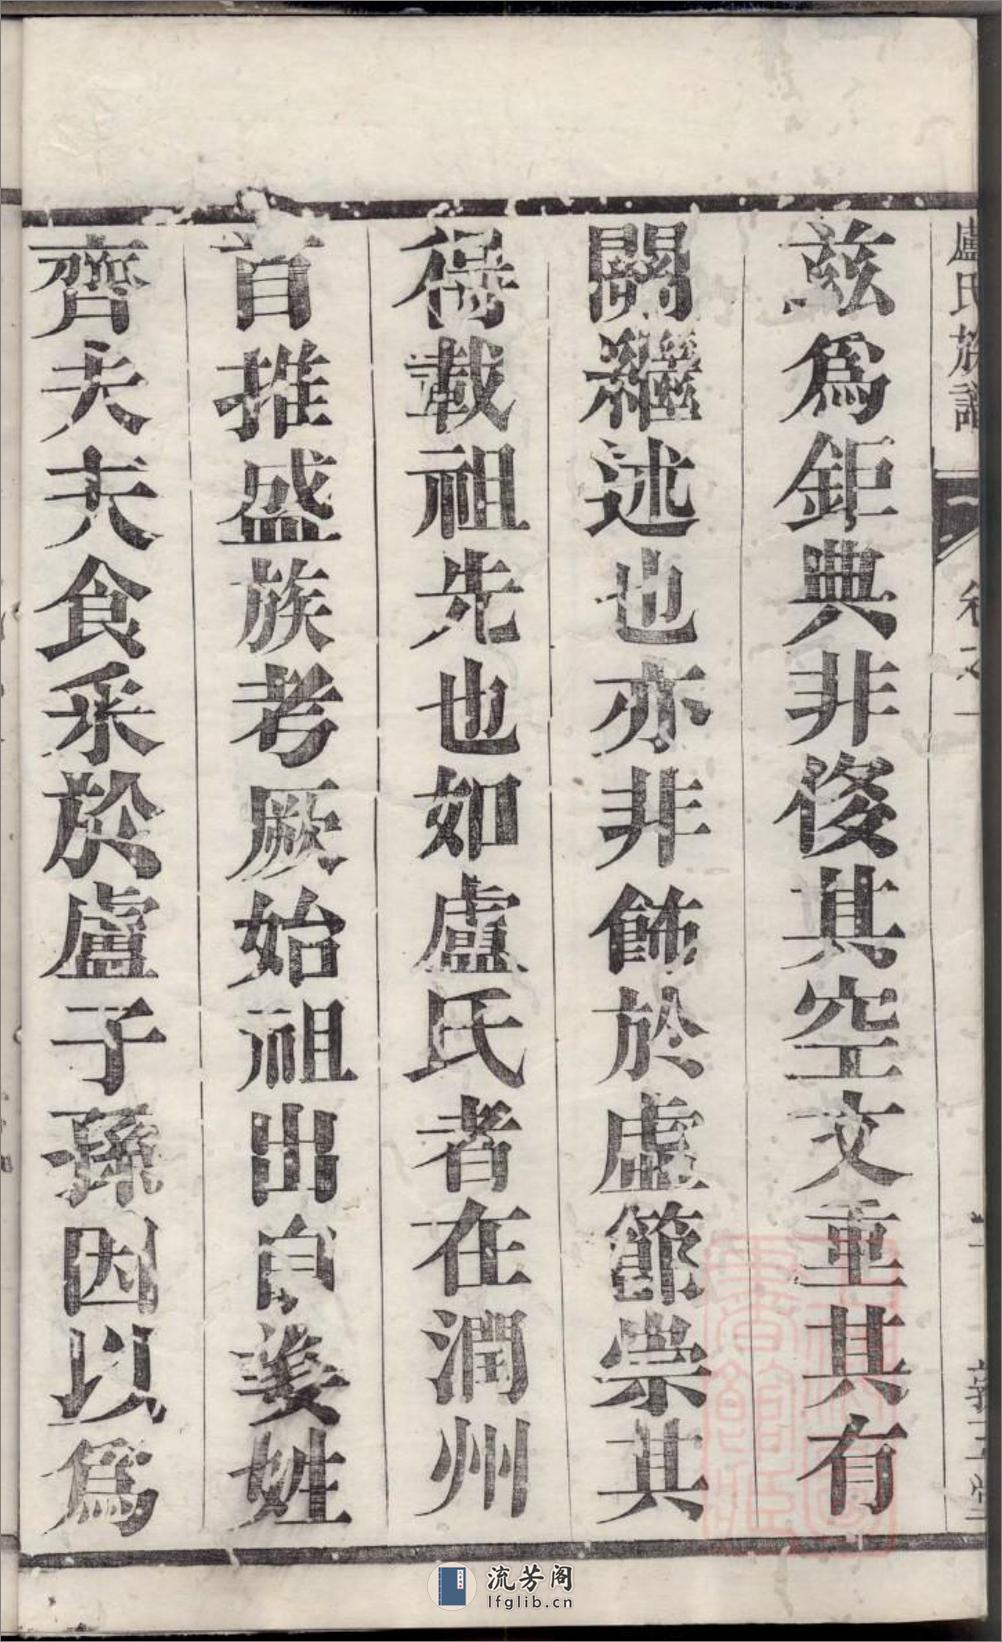 盧氏族譜 卷之一
茲為鉅典非後其空文重其有
關繼述也亦非飾於虛節崇其
得載祖先也如盧氏者在潤州
首推盛族考厥始祖出自姜姓
齊大夫食采於盧子孫因以為
流芳阁
lfglib.cn